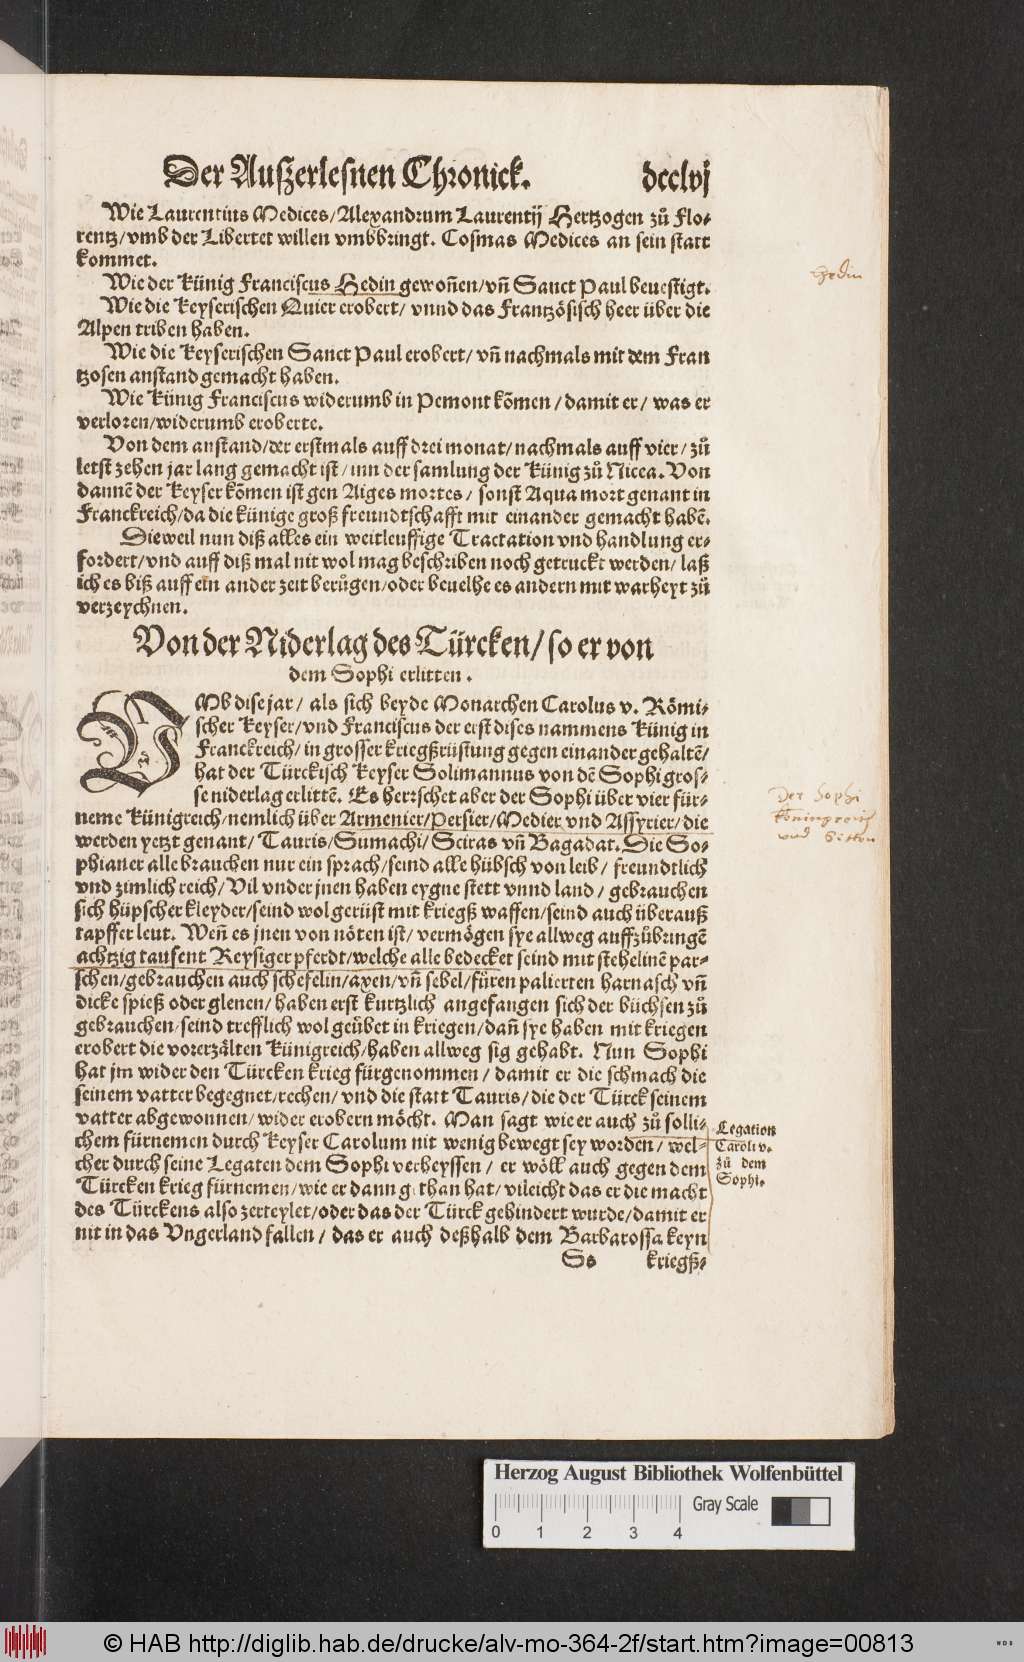 Der Außerlesnen Chronick. dcclvj
Wie Laurentius Medices/Alexandrum Laurentij Hertzogen zů Flo-
rentz/vmb der Libertet willen vmbbringt. Cosmas Medices an sein statt
kommet.
Wie der Künig Franciscus Hedin gewoñen/vñ Sanct Paul beuestigt.
Hedin
Wie die Keyserischen Quier erobert/ vnnd das Frantzösisch heer über die
Alpen triben haben.
Wie die Keyserischen Sanct Paul erobert/ vñ nachmals mit dem Fran
tzosen anstand gemacht haben.
Wie Künig Franciscus widerumb in Pemont kõmen / damit er / was er
verloren/widerumb eroberte.
Von dem anstand/der erstmals auff drei monat/nachmals auff vier/ zů
letst zehen jar lang gemacht ist / inn der samlung der Künig zů Nicea. Von
dannẽ der Keyser kõmen ist gen Aiges mortes / sonst Aqua mort genant in
Franckreich/da die künige groß freundtschafft mit einander gemacht habẽ.
Dieweil nun diß alles ein weitleuffige Tractation vnd handlung er-
fordert/vnd auff diß mal nit wol mag beschriben noch getruckt werden/ laß
ich es biß auff ein ander zeit berůgen/oder beuelhe es andern mit warheyt zů
verzeychnen.
Von der Niderlag des Türcken/ so er von
dem Sophi erlitten.
VMb dise jar/ als sich beyde Monarchen Carolus v. Römi-
scher Keyser/vnd Franciscus der erst dises nammens Künig in
Franckreich/ in grosser kriegßrüstung gegen einander gehaltẽ/
hat der Türckisch Keyser Solimannus von dẽ Sophi gros-
se niderlag erlittẽ. Es herrschet aber der Sophi über vier für-
neme Künigreich/nemlich über Armenier/Persier/Medier vnd Assyrier/die
werden yetzt genant/ Tauris/Sumachi/Sciras vñ Bagadat. Die So-
phianer alle brauchen nur ein sprach/seind alle hübsch von leib/ freundtlich
vnd zimlich reich/ Vil vnder jnen haben eygne stett vnnd land / gebrauchen
sich hüpscher kleyder/seind wol gerüst mit kriegß waffen/seind auch überauß
tapffer leut. Weñ es jnen von nöten ist/ vermögen sye allweg auffzůbringẽ
achtzig tausent Reysiger pferdt/welche alle bedecket seind mit stehelinẽ par-
schen/gebrauchen auch schefelin/axen/vñ sebel/füren palierten harnasch vñ
dicke spieß oder glenen/ haben erst kurtzlich angefangen sich der büchsen zů
gebrauchen/seind trefflich wol geübet in kriegen/dañ sye haben mit kriegen
erobert die vorerzälten Künigreich/haben allweg sig gehabt. Nun Sophi
hat jm wider den Türcken krieg fürgenommen / damit er die schmach die
seinem vatter begegnet/rechen/ vnd die statt Tauris/die der Türck seinem
vatter abgewonnen/wider erobern möcht. Man sagt wie er auch zů solli-
chem fürnemen durch Keyser Carolum nit wenig bewegt sey worden/ wel-
cher durch seine Legaten dem Sophi verheyssen / er wöll auch gegen dem
Türcken krieg fürnemen/wie er dann gethan hat/ vileicht das er die macht
des Türckens also zerteylet/oder das der Türck gehindert wurde/damit er
nit in das Vngerland fallen / das er auch deßhalb dem Barbarossa keyn
Der Sophi
Königreich
und Sitten
Legation
Caroli v.
zů dem
Sophi.
Ss kriegß-
Herzog August Bibliothek Wolfenbüttel
Gray Scale
0 1 2 3 4
© HAB http://diglib.hab.de/drucke/alv-mo-364-2f/start.htm?image=00813